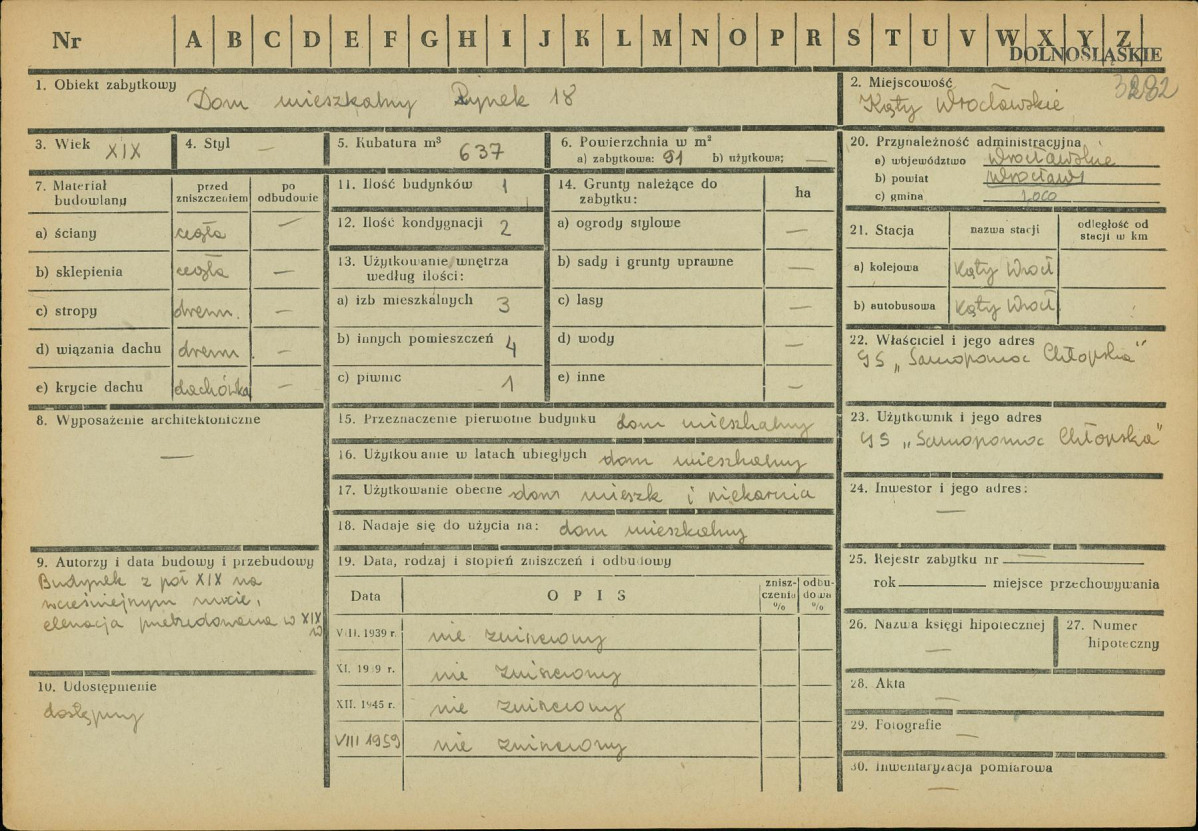 Nr A B C D E F G H I J K L M N O P R S T U V W X Y Z
DOLNOŚLĄSKIE
1. Obiekt zabytkowy Dom mieszkalny Rynek 18
2. Miejscowość 3282
Kąty Wrocławskie
3. Wiek XIX
4. Styl —
5. Kubatura m³ 637
6. Powierzchnia w m²
a) zabytkowa: 91 b) użytkowa; —
20. Przynależność administracyjna
a) województwo wrocławskie
b) powiat Wrocław
c) gmina loco
7. Materiał budowlany
przed zniszczeniem
po odbudowie
a) ściany cegła —
b) sklepienia cegła —
c) stropy drewn. —
d) wiązania dachu drewn. —
e) krycie dachu dachówka —
11. Ilość budynków 1
12. Ilość kondygnacji 2
13. Użytkowanie wnętrza
według ilości:
a) izb mieszkalnych 3
b) innych pomieszczeń 4
c) piwnic 1
14. Grunty należące do
zabytku:
ha
a) ogrody stylowe —
b) sady i grunty uprawne —
c) lasy —
d) wody —
e) inne —
21. Stacja
nazwa stacji
odległość od
stacji w km
a) kolejowa Kąty Wrocł
b) autobusowa Kąty Wrocł
22. Właściciel i jego adres
GS „Samopomoc Chłopska"
8. Wyposażenie architektoniczne
—
15. Przeznaczenie pierwotne budynku dom mieszkalny
16. Użytkowanie w latach ubiegłych dom mieszkalny
17. Użytkowanie obecne dom mieszk i piekarnia
18. Nadaje się do użycia na: dom mieszkalny
23. Użytkownik i jego adres
GS „Samopomoc Chłopska"
24. Inwestor i jego adres:
—
9. Autorzy i data budowy i przebudowy
Budynek z poł XIX na
wcześniejszym rzucie,
elewacja przebudowana w XIX
w
10. Udostępnienie
dostępny
19. Data, rodzaj i stopień zniszczeń i odbudowy
Data
OPIS
zniszczenia %
odbudowa %
VIII. 1939 r. nie zniszczony
XI. 1939 r. nie zniszczony
XII. 1945 r. nie zniszczony
VIII 1959 nie zniszczony
25. Rejestr zabytku nr —
rok miejsce przechowywania
26. Nazwa księgi hipotecznej
—
27. Numer
hipoteczny
28. Akta
—
29. Fotografie
—
30. Inwentaryzacja pomiarowa
—